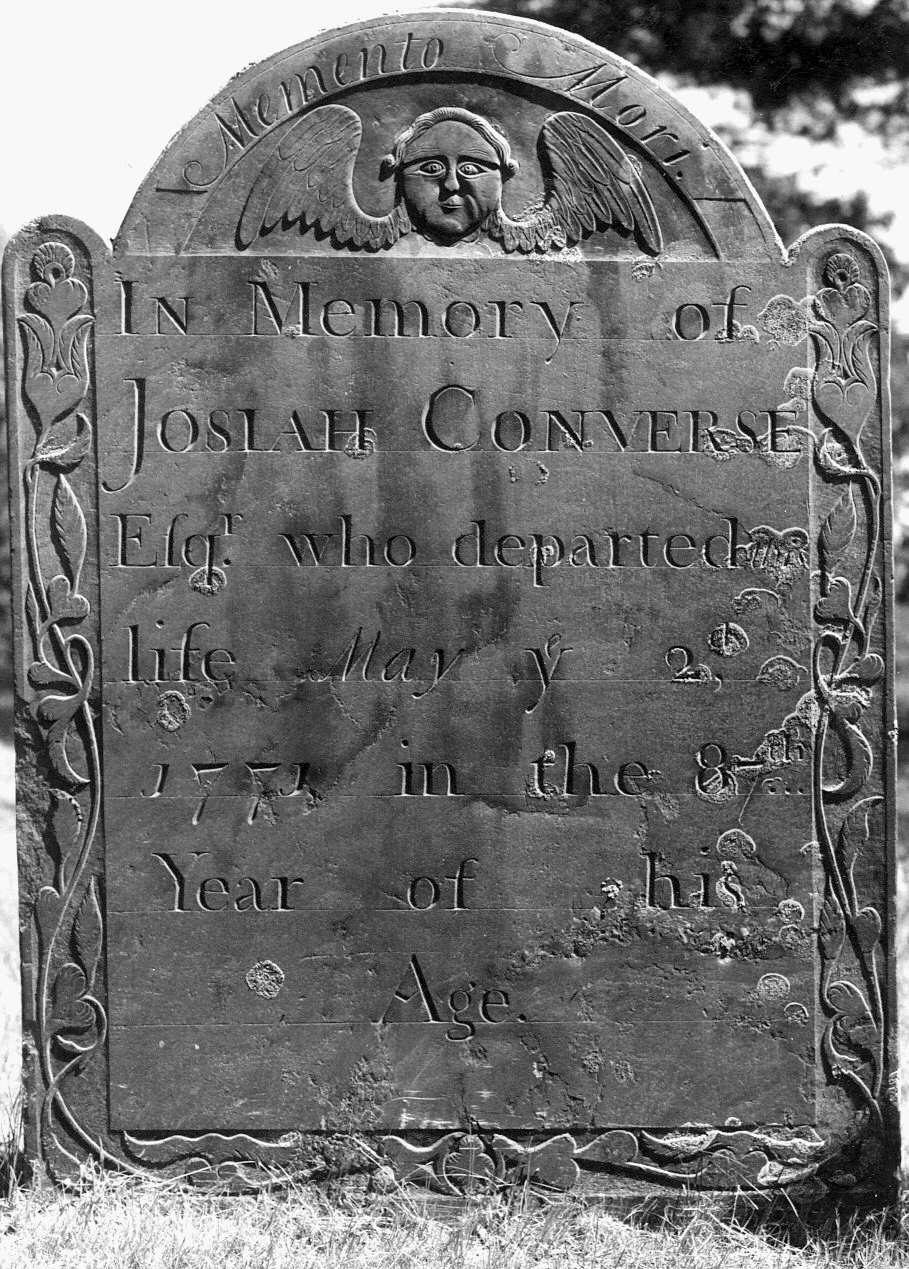 Memento Mori.
IN Memory of
JOSIAH CONVERSE
Eſqʳ. who departed this
life May yᵉ 2ᵈ,
1771 in the 87ᵗʰ
Year of his
Age.